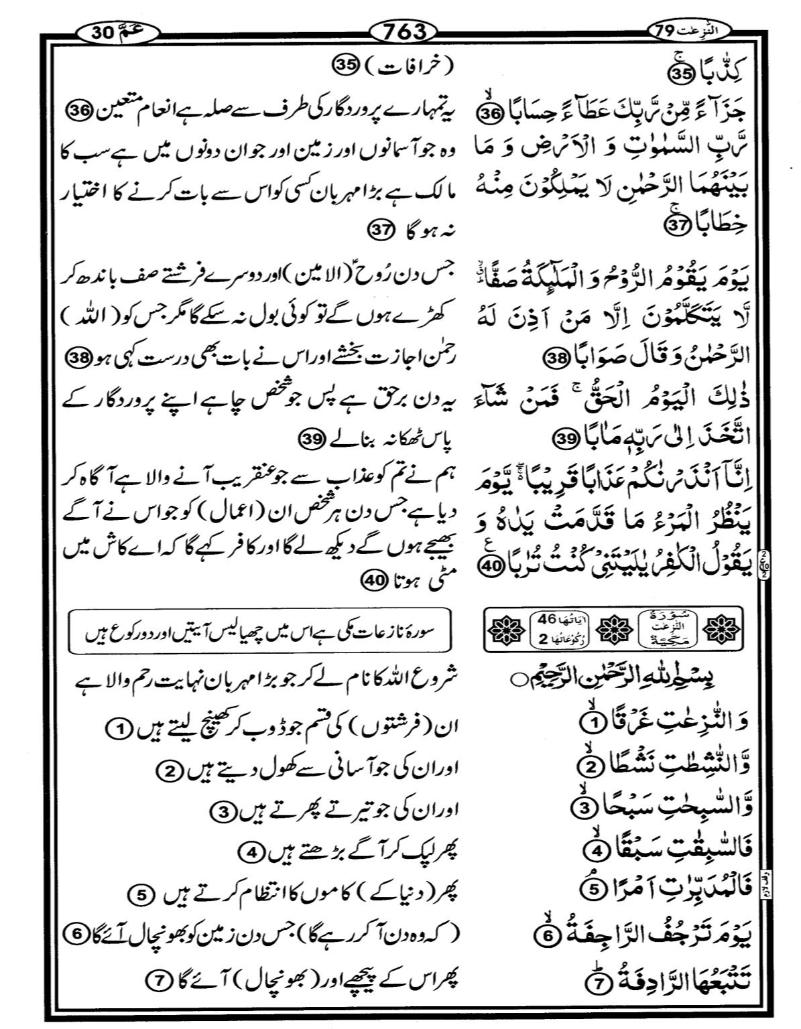 النّٰزِعٰت 79
763
عَمَّ 30
كِذّٰبًا ﴿35﴾
(خرافات) ﴿35﴾
جَزَآءً مِّنْ رَّبِّكَ عَطَآءً حِسَابًا ﴿36﴾
یہ تمہارے پروردگار کی طرف سے صلہ ہے انعام متعین ﴿36﴾
رَّبِّ السَّمٰوٰتِ وَ الْاَرْضِ وَ مَا
بَيْنَهُمَا الرَّحْمٰنِ لَا يَمْلِكُوْنَ مِنْهُ
خِطَابًا ﴿37﴾
وہ جو آسمانوں اور زمین اور جو ان دونوں میں ہے سب کا
مالک ہے بڑا مہربان کسی کو اس سے بات کرنے کا اختیار
نہ ہوگا ﴿37﴾
يَوْمَ يَقُوْمُ الرُّوْحُ وَ الْمَلٰٓئِكَةُ صَفًّا
لَّا يَتَكَلَّمُوْنَ اِلَّا مَنْ اَذِنَ لَهُ
الرَّحْمٰنُ وَقَالَ صَوَابًا ﴿38﴾
جس دن رُوح (الامین) اور دوسرے فرشتے صف باندھ کر
کھڑے ہوں گے تو کوئی بول نہ سکے گا مگر جس کو (اللہ)
رحمٰن اجازت بخشے اور اس نے بات بھی درست کہی ہو ﴿38﴾
ذٰلِكَ الْيَوْمُ الْحَقُّ ۚ فَمَنْ شَآءَ
اتَّخَذَ اِلٰى رَبِّهٖ مَاٰبًا ﴿39﴾
یہ دن برحق ہے پس جو شخص چاہے اپنے پروردگار کے
پاس ٹھکانہ بنا لے ﴿39﴾
اِنَّآ اَنْذَرْنٰكُمْ عَذَابًا قَرِيْبًا ۚ يَّوْمَ
يَنْظُرُ الْمَرْءُ مَا قَدَّمَتْ يَدٰهُ وَ
يَقُوْلُ الْكٰفِرُ يٰلَيْتَنِيْ كُنْتُ تُرٰبًا ﴿40﴾
ہم نے تم کو عذاب سے جو عنقریب آنے والا ہے آگاہ کر
دیا ہے جس دن ہر شخص ان (اعمال) کو جو اس نے آگے
بھیجے ہوں گے دیکھ لے گا اور کافر کہے گا کہ اے کاش میں
مٹی ہوتا ﴿40﴾
سُوْرَةُ النّٰزِعٰتِ مَكِّيَّةٌ
اٰيَاتُهَا 46
رُكُوْعَاتُهَا 2
سورۂ نازعات مکی ہے اس میں چھیالیس آیتیں اور دو رکوع ہیں
بِسْمِ اللهِ الرَّحْمٰنِ الرَّحِيْمِ
شروع اللہ کا نام لے کر جو بڑا مہربان نہایت رحم والا ہے
وَالنّٰزِعٰتِ غَرْقًا ﴿1﴾
ان (فرشتوں) کی قسم جو ڈوب کر کھینچ لیتے ہیں ﴿1﴾
وَّالنّٰشِطٰتِ نَشْطًا ﴿2﴾
اور ان کی جو آسانی سے کھول دیتے ہیں ﴿2﴾
وَّالسّٰبِحٰتِ سَبْحًا ﴿3﴾
اور ان کی جو تیرتے پھرتے ہیں ﴿3﴾
فَالسّٰبِقٰتِ سَبْقًا ﴿4﴾
پھر لپک کر آگے بڑھتے ہیں ﴿4﴾
فَالْمُدَبِّرٰتِ اَمْرًا ﴿5﴾
پھر (دنیا کے) کاموں کا انتظام کرتے ہیں ﴿5﴾
وقف لازم
يَوْمَ تَرْجُفُ الرَّاجِفَةُ ﴿6﴾
(کہ وہ دن آ کر رہے گا) جس دن زمین کو بھونچال آئے گا ﴿6﴾
تَتْبَعُهَا الرَّادِفَةُ ﴿7﴾
پھر اس کے پیچھے اور (بھونچال) آئے گا ﴿7﴾